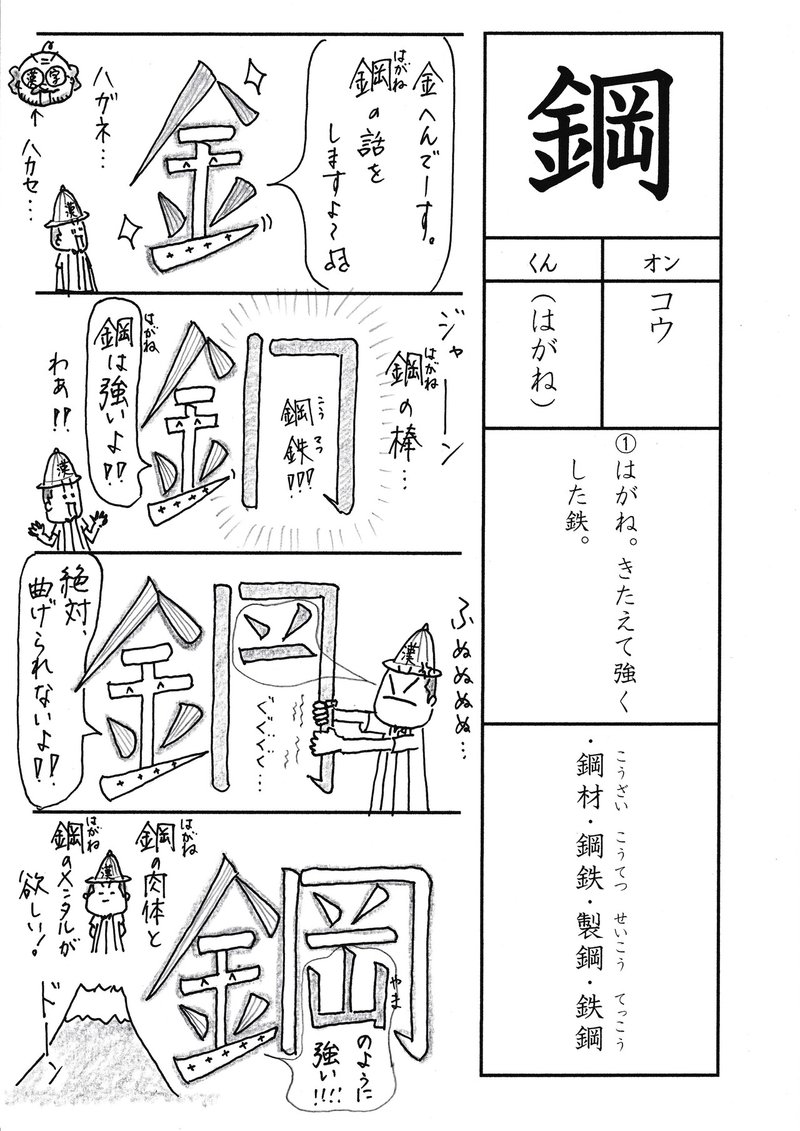 鋼
オン
コウ
くん
(はがね)
①はがね。きたえて強く
した鉄。
・鋼材・鋼鉄・製鋼・鉄鋼
こうざい こうてつ せいこう てっこう
金へんでーす。
鋼の話を
はがね
しますよ～♫
金
ハガネ…
漢字
↑
ハカセ…
漢
ジャーン
鋼の棒…
はがね
鋼鉄!!!
こうてつ
金
鋼は強いよ!!
はがね
わぁ!!
漢
ふぬぬぬぬ…
漢
ぐぐぐぐ…
金
絶対、
曲げられないよ!!
鋼
やま
のように
強い!!!!
鋼の肉体と
はがね
漢
鋼のメンタルが
はがね
欲しい!
ドーン